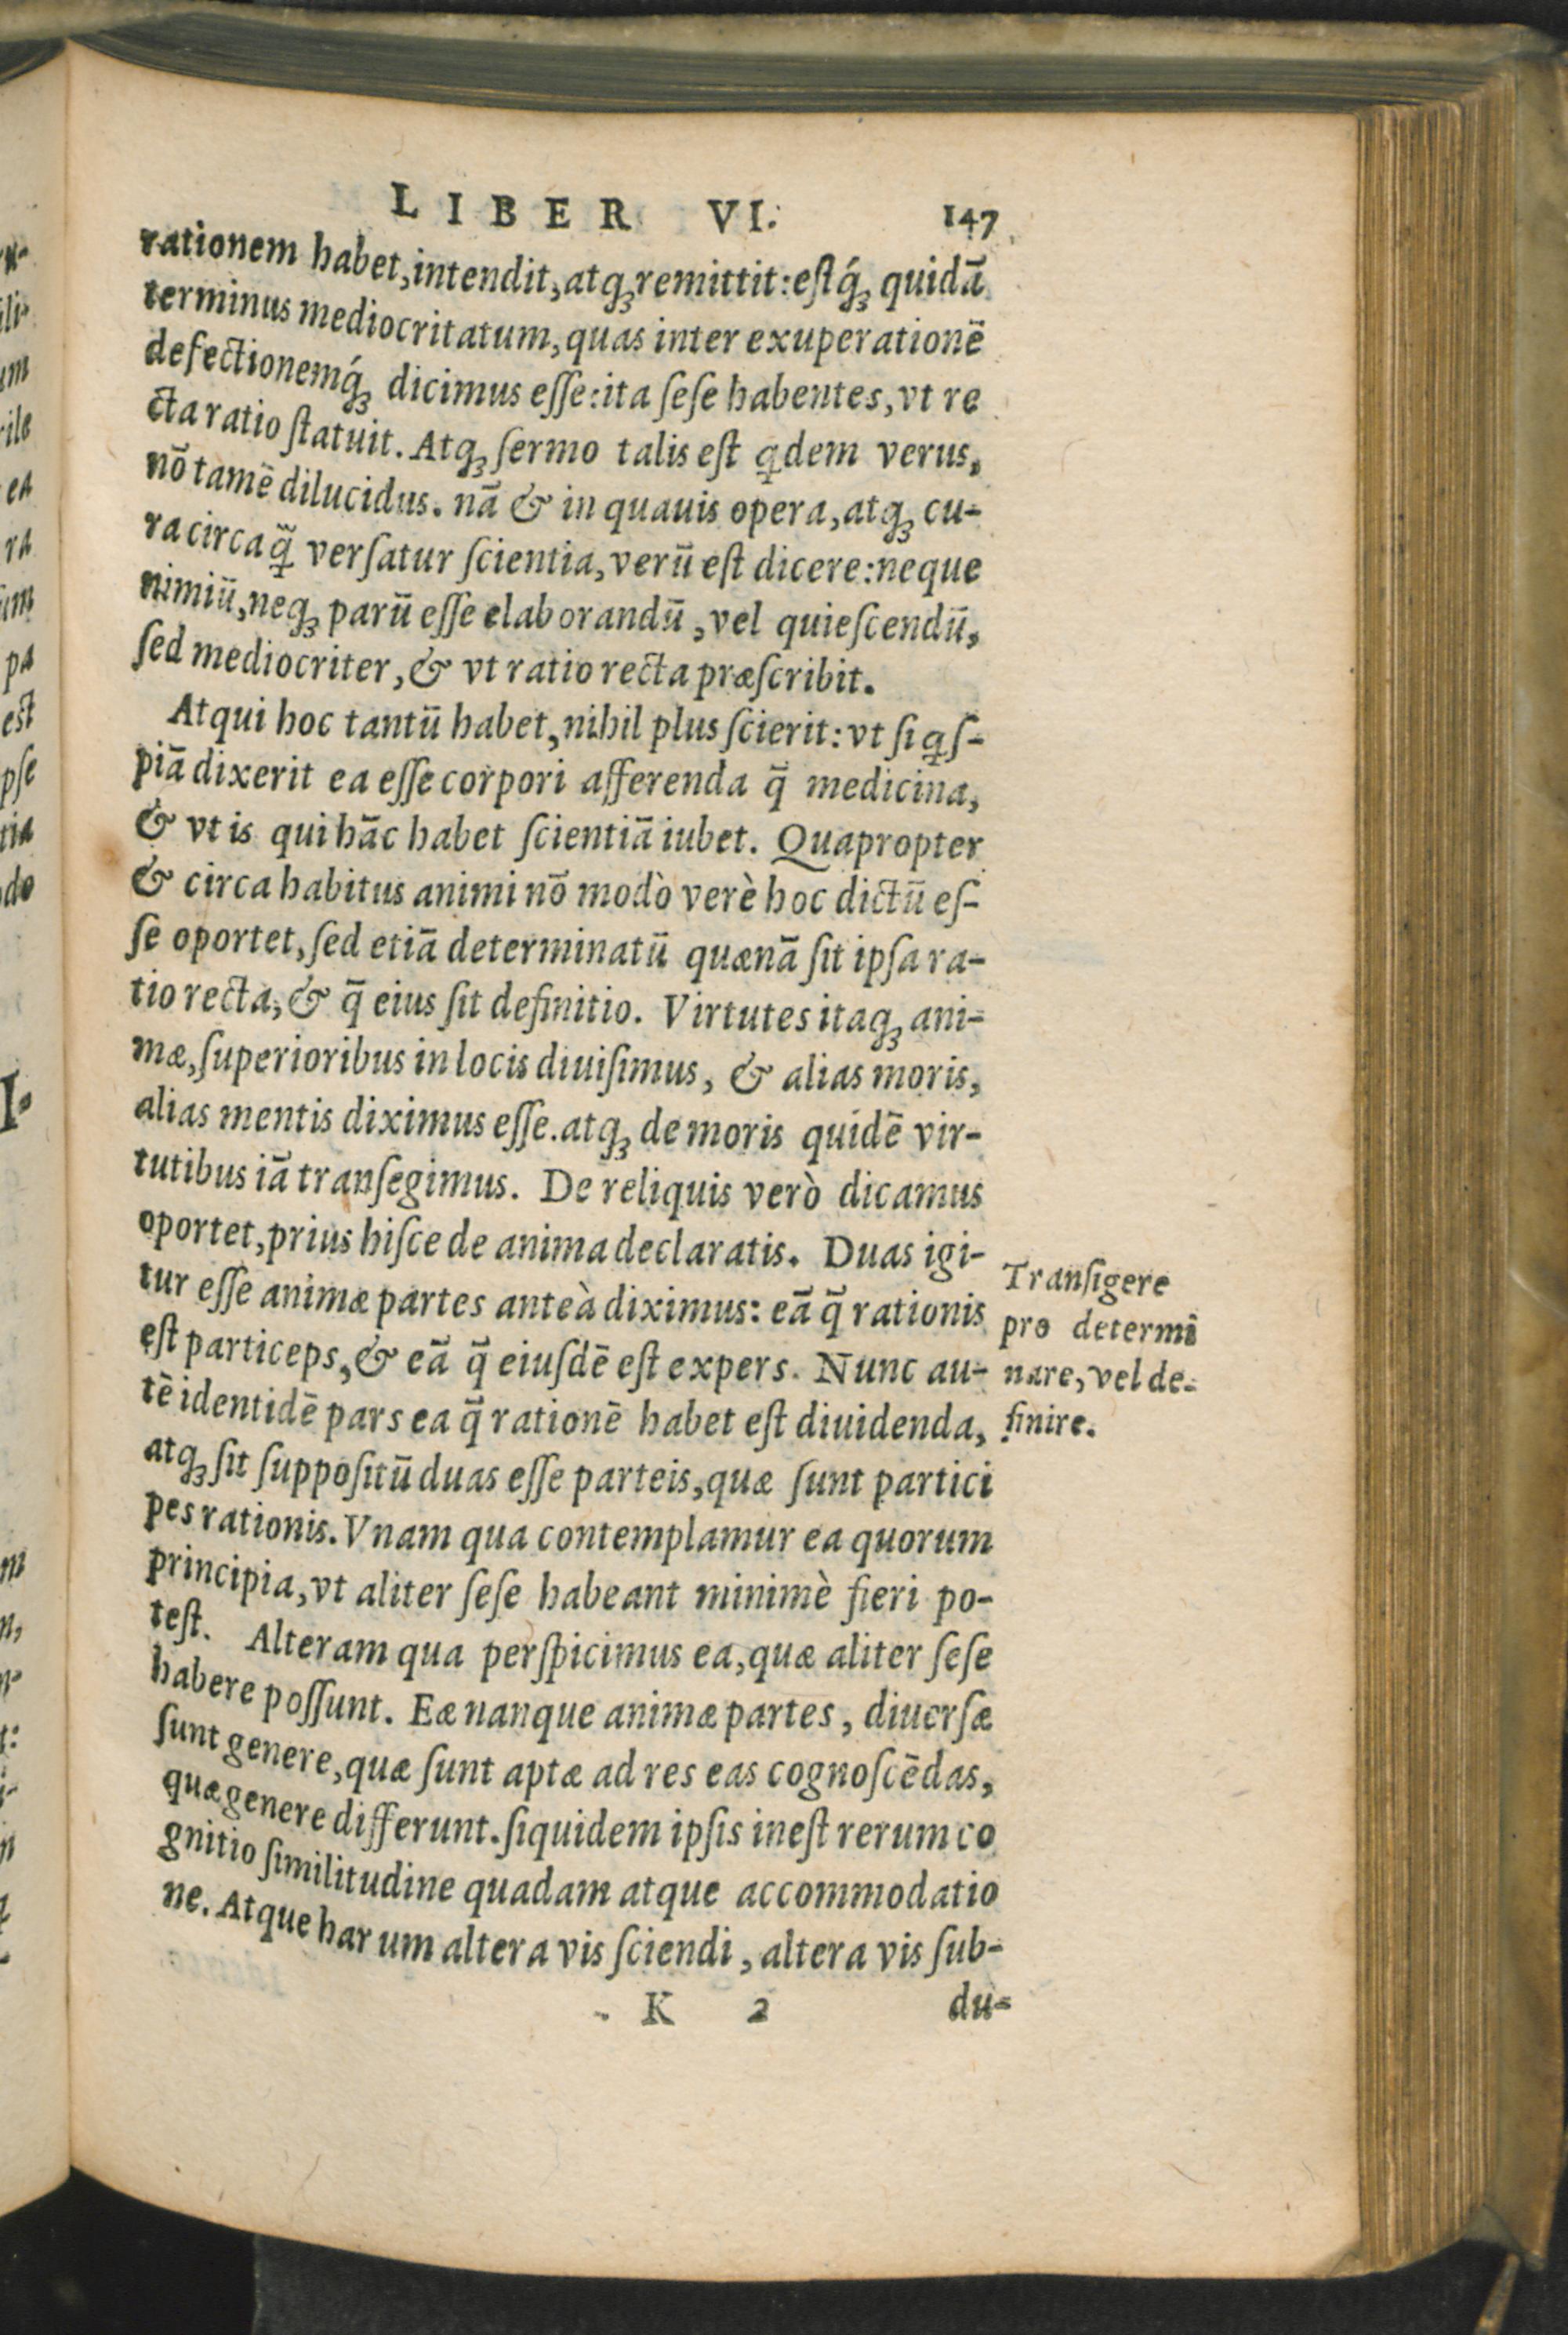 LIBER VI. 147
rationem habet, intendit, atqꝫ remittit: eſtq́ꝫ quidā
terminus mediocritatum, quas inter exuperationē
defectionemq́ꝫ dicimus eſſe: ita ſeſe habentes, vt re
cta ratio ſtatuit. Atqꝫ ſermo talis eſt ꝗdem verus,
nō tamē dilucidus. nā & in quauis opera, atqꝫ cu-
ra circa ꝗ̄ verſatur ſcientia, verū eſt dicere: neque
nimiū, neqꝫ parū eſſe elaborandū, vel quieſcendū,
ſed mediocriter, & vt ratio recta præſcribit.
Atqui hoc tantū habet, nihil plus ſcierit: vt ſi ꝗſ-
piā dixerit ea eſſe corpori afferenda q̄ medicina,
& vt is qui hāc habet ſcientiā iubet. Quapropter
& circa habitus animi nō modò verè hoc dictū eſ-
ſe oportet, ſed etiā determinatū quænā ſit ipſa ra-
tio recta, & q̄ eius ſit definitio. Virtutes itaqꝫ ani-
mæ, ſuperioribus in locis diuiſimus, & alias moris,
alias mentis diximus eſſe. atqꝫ de moris quidē vir-
tutibus iā tranſegimus. De reliquis verò dicamus
oportet, prius hiſce de anima declaratis. Duas igi-
tur eſſe animæ partes anteà diximus: eā q̄ rationis
eſt particeps, & eā q̄ eiuſdē eſt expers. Nunc au-
tē identidē pars ea q̄ rationē habet eſt diuidenda,
atqꝫ ſit ſuppoſitū duas eſſe parteis, quæ ſunt partici
pes rationis. Vnam qua contemplamur ea quorum
principia, vt aliter ſeſe habeant minimè fieri po-
teſt. Alteram qua perſpicimus ea, quæ aliter ſeſe
habere poſſunt. Eæ nanque animæ partes, diuerſæ
ſunt genere, quæ ſunt aptæ ad res eas cognoſcēdas,
quæ genere differunt. ſiquidem ipſis ineſt rerum co
gnitio ſimilitudine quadam atque accommodatio
ne. Atque harum altera vis ſciendi, altera vis ſub-
K 2 du-
Tranſigere
pro determi
nare, vel de-
finire.